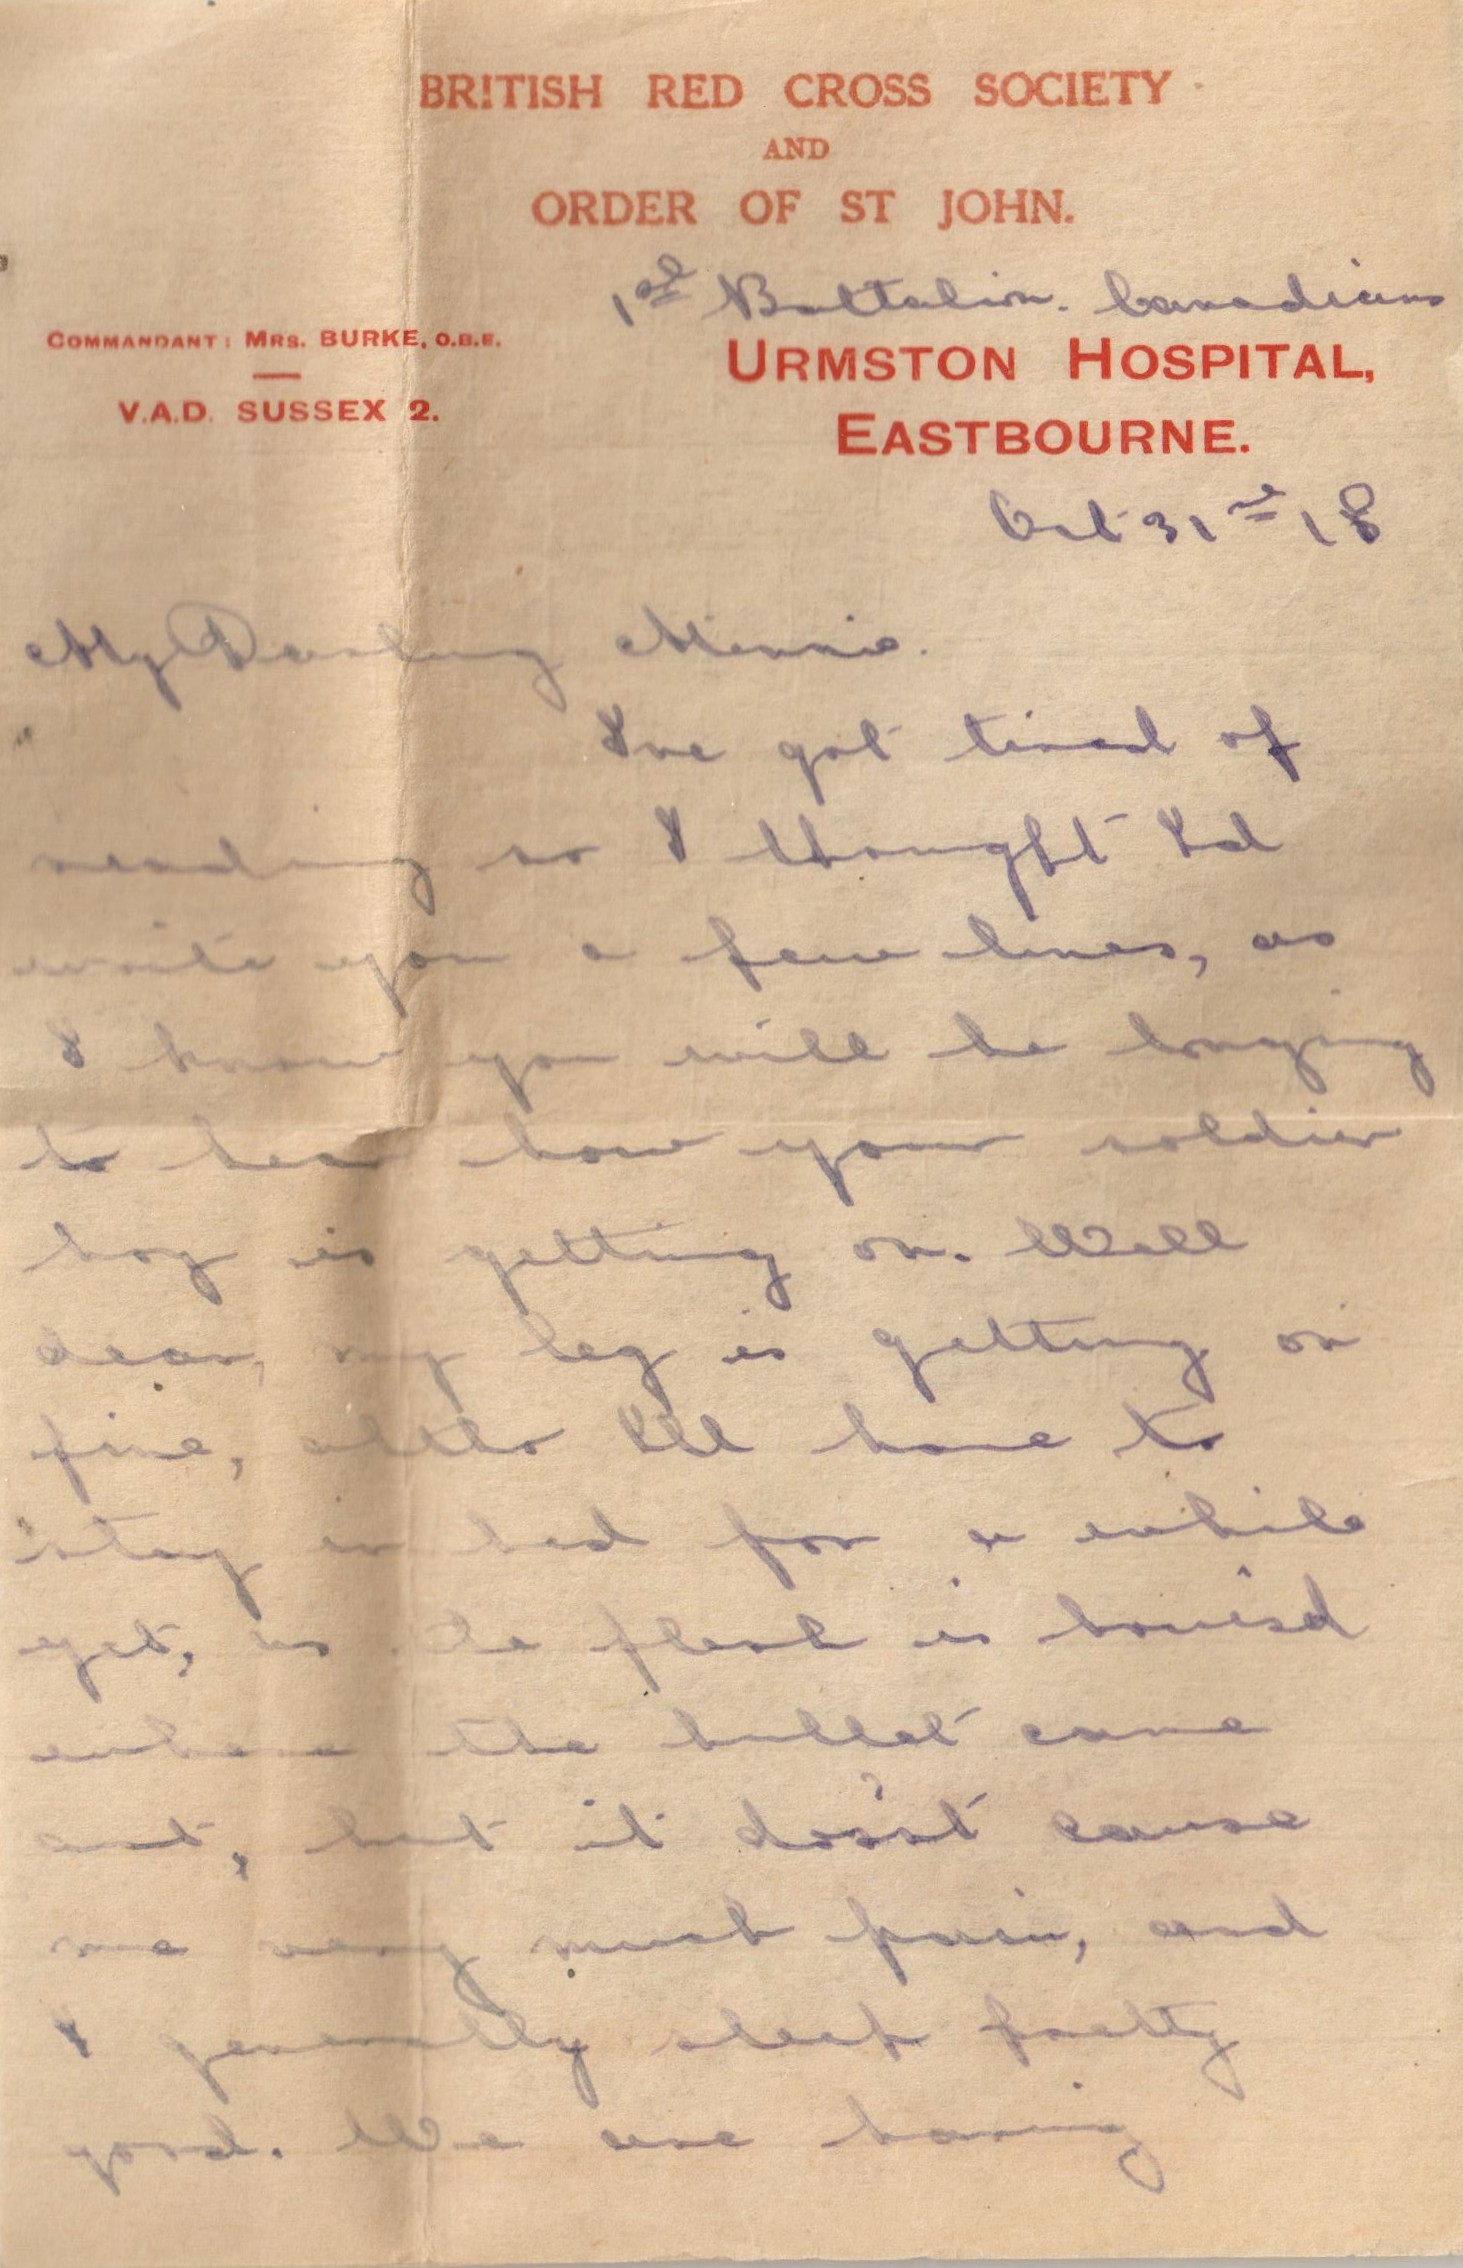 BRITISH RED CROSS SOCIETY
AND
ORDER OF ST JOHN.
1st Battalion. Canadians
COMMANDANT: MRS. BURKE, O.B.E.
V.A.D. SUSSEX 2.
URMSTON HOSPITAL,
EASTBOURNE.
Oct 31st 18
My Darling Minnie.
I've got tired of
reading so I thought I'd
write you a few lines, as
I know you will be longing
to hear how your soldier
boy is getting on. Well
dear, my leg is getting on
fine, altho I'll have to
stay in bed for a while
yet, as the flesh is bruis'd
where the bullet came
out, but it dos'nt cause
me very much pain, and
I generally sleep pretty
good. We are having